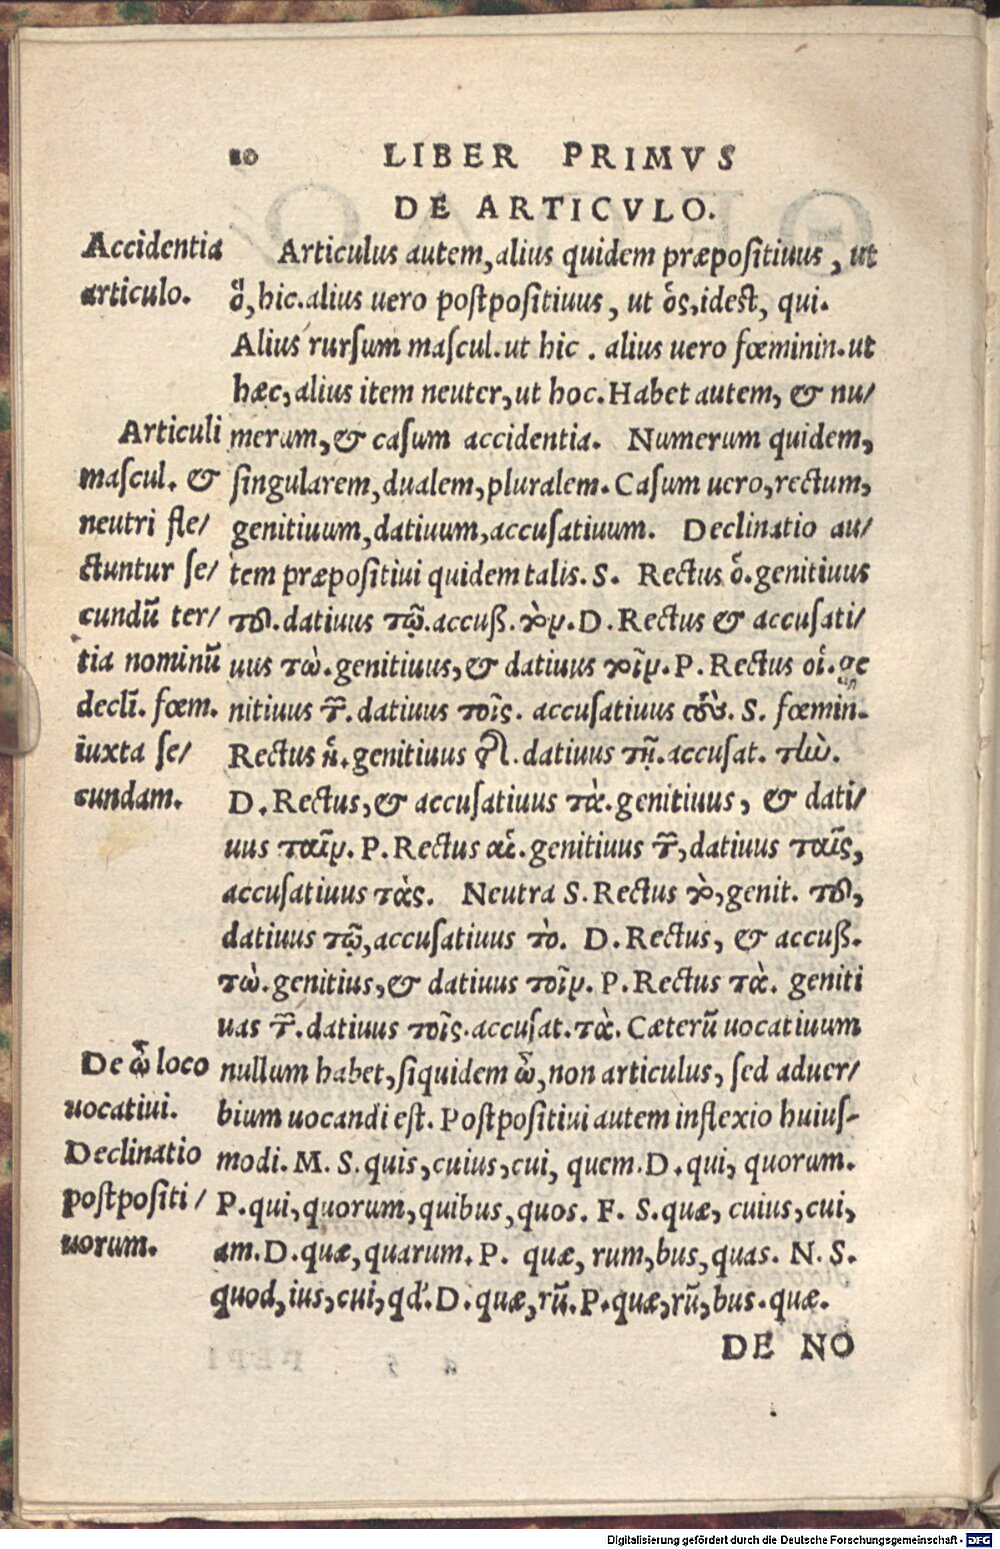 10 LIBER PRIMVS
DE ARTICVLO.
Accidentia
articulo.
Articulus autem, alius quidem præpositiuus, ut
ὅ, hic. alius uero postpositiuus, ut ὅς, idest, qui.
Alius rursum mascul. ut hic. alius uero fœminin. ut
hæc, alius item neuter, ut hoc. Habet autem, & nu/
merum, & casum accidentia. Numerum quidem,
singularem, dualem, pluralem. Casum uero, rectum,
genitiuum, datiuum, accusatiuum. Declinatio au/
tem præpositiui quidem talis. S. Rectus ὁ. genitiuus
τοῦ. datiuus τῷ. accuß. τὸν. D. Rectus & accusati/
uus τὼ. genitiuus, & datiuus τοῖν. P. Rectus οἱ. ge
nitiuus τῶν. datiuus τοῖς. accusatiuus τοὺς. S. fœmin.
Rectus ἡ. genitiuus τῆς. datiuus τῇ. accusat. τὴν.
D. Rectus, & accusatiuus τὰ. genitiuus, & dati/
uus ταῖν. P. Rectus αἱ. genitiuus τῶν, datiuus ταῖς,
accusatiuus τὰς. Neutra S. Rectus τὸ, genit. τοῦ,
datiuus τῷ, accusatiuus τὸ. D. Rectus, & accuß.
τὼ. genitius, & datiuus τοῖν. P. Rectus τὰ. geniti
uas τῶν. datiuus τοῖς. accusat. τὰ. Cæterũ uocatiuum
nullum habet, siquidem ὦ, non articulus, sed aduer/
bium uocandi est. Postpositiui autem inflexio huius-
modi. M. S. quis, cuius, cui, quem. D. qui, quorum.
P. qui, quorum, quibus, quos. F. S. quæ, cuius, cui,
am. D. quæ, quarum. P. quæ, rum, bus, quas. N. S.
quod, ius, cui, qd'. D. quæ, rũ. P. quæ, rũ, bus. quæ.
Articuli
mascul. &
neutri fle/
ctuntur se/
cundũ ter/
tia nominũ
decli. fœm.
iuxta se/
cundam.
De ὦ loco
uocatiui.
Declinatio
postpositi/
uorum.
DE NO
Digitalisierung gefördert durch die Deutsche Forschungsgemeinschaft - DFG